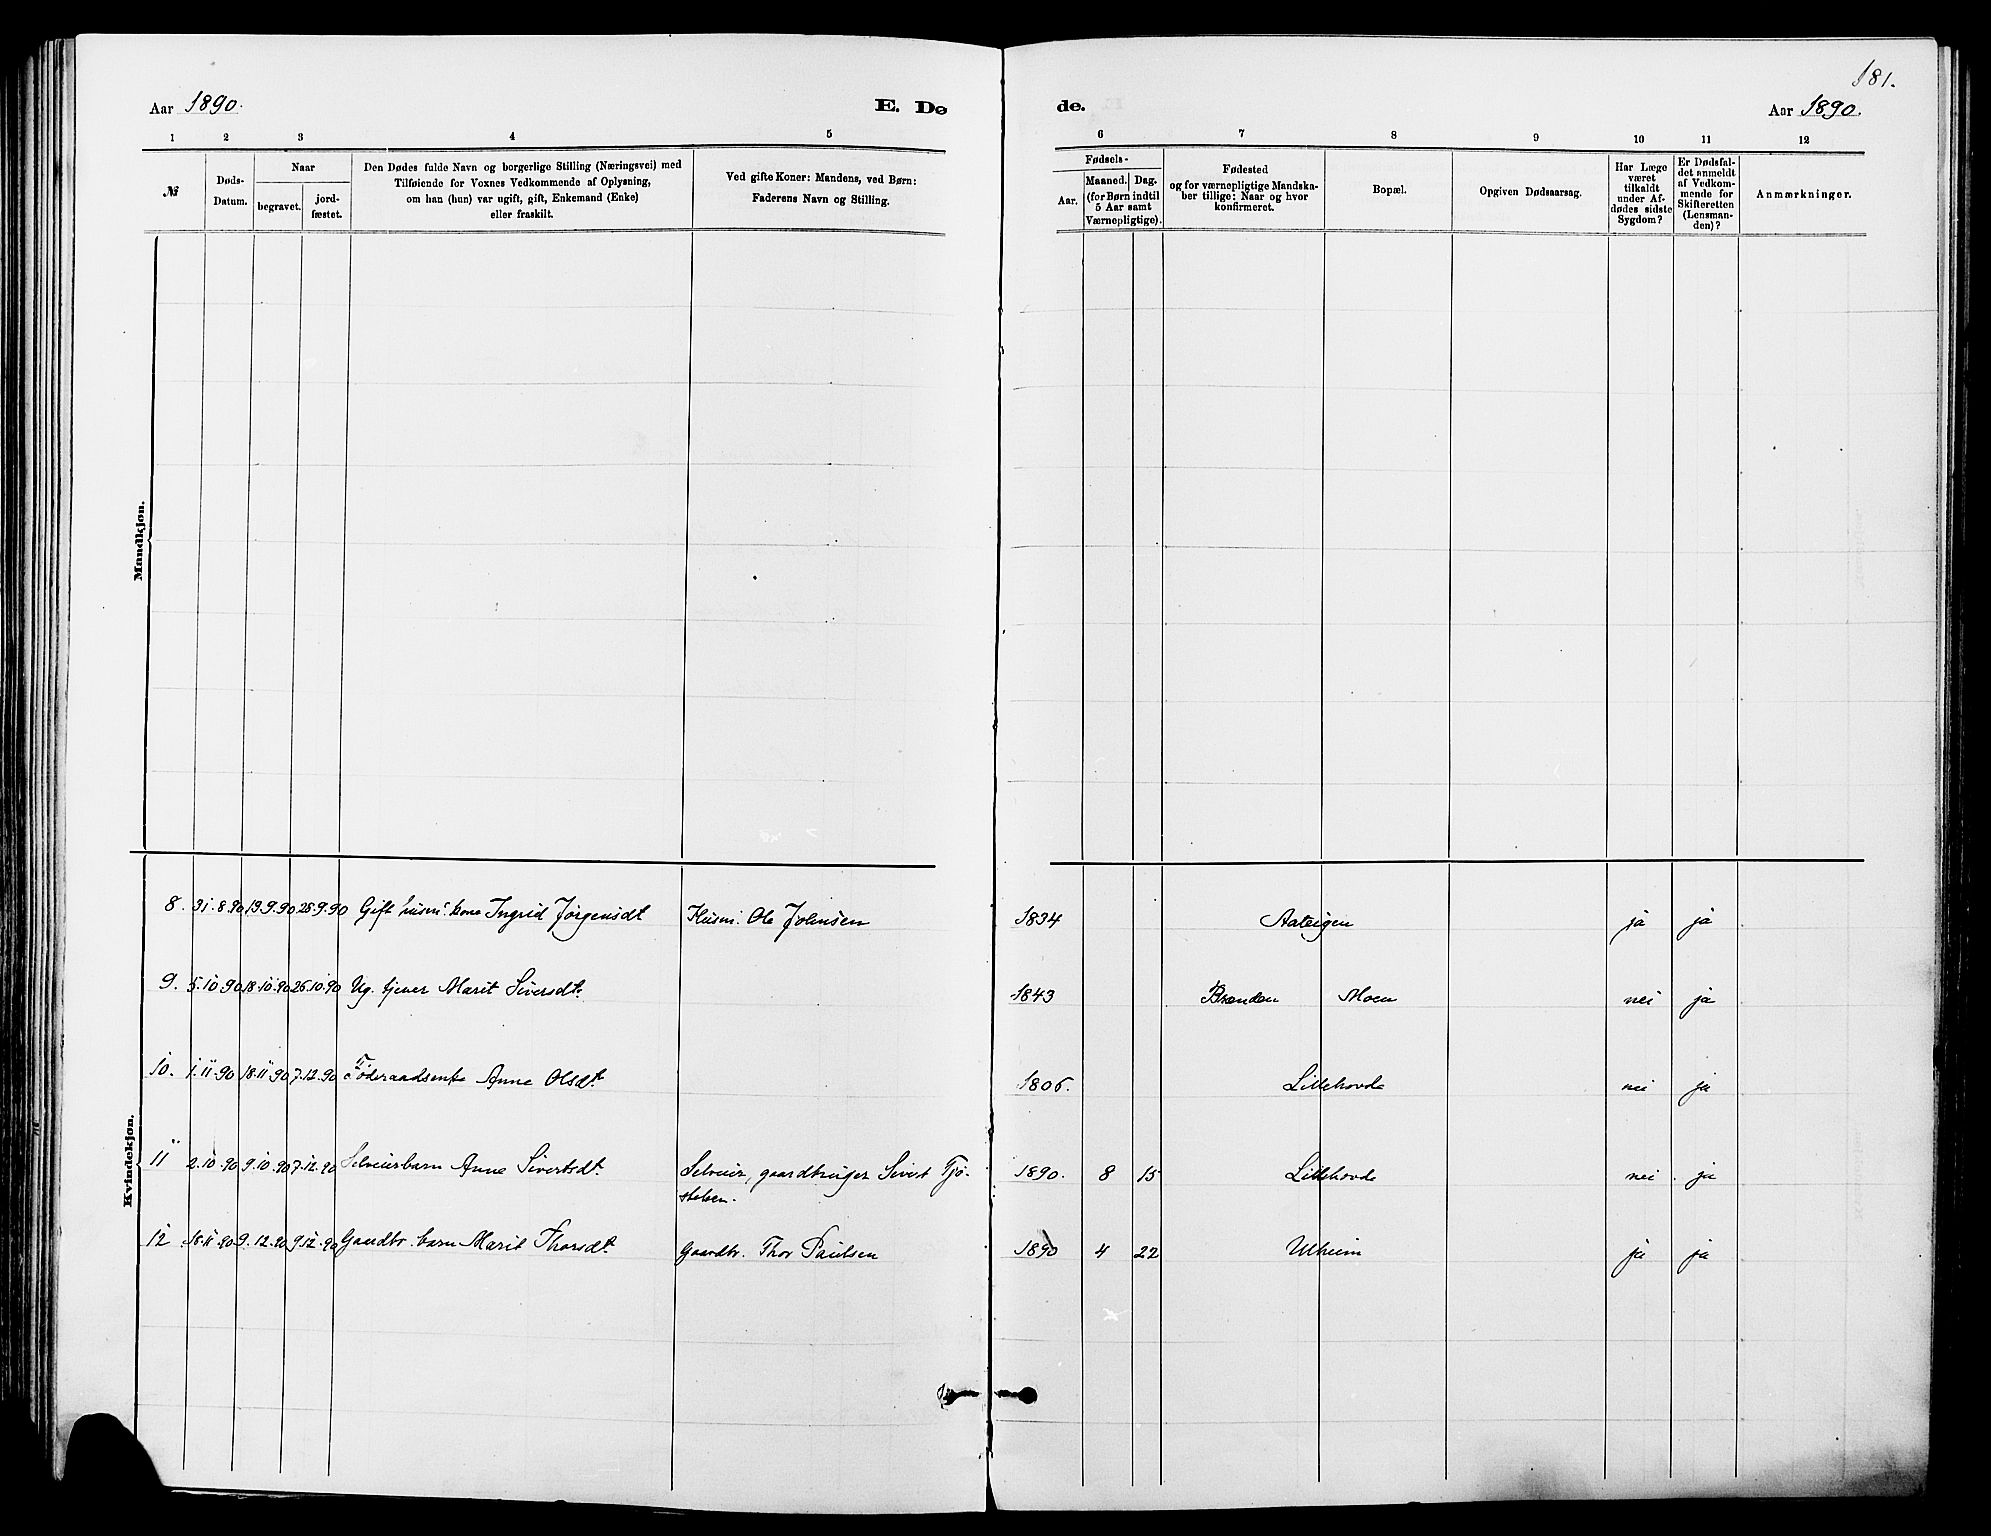 181.
Aar 1890.
E. Dø
de.
Aar 1890.
1 2 3 4 5
6 7 8 9 10 11 12
№
Døds-
Datum.
Naar
begravet.
jord-
fæstet.
Den Dødes fulde Navn og borgerlige Stilling (Næringsvei) med
Tilføiende for Voxnes Vedkommende af Oplysning,
om han (hun) var ugift, gift, Enkemand (Enke)
eller fraskilt.
Ved gifte Koner: Mandens, ved Børn:
Faderens Navn og Stilling.
Fødsels-
Aar.
Maaned. Dag.
(for Børn indtil
5 Aar samt
Værnepligtige).
Fødested
og for værnepligtige Mandska-
ber tillige: Naar og hvor
konfirmeret.
Bopæl.
Opgiven Dødsaarsag.
Har Læge
været
tilkaldt
under Af-
dødes sidste
Sygdom?
Er Dødsfal-
det anmeldt
af Vedkom-
mende for
Skifteretten
(Lensman-
den)?
Anmærkninger.
Mandkjøn.
Kvindekjøn.
8. 31.8.90 19.9.90 28.9.90 Gift husm. kone Ingrid Jørgensdt Husm. Ole Johnsen 1834 Aateigen ja ja
9. 5.10.90 18.10.90 26.10.90 Ug. tjener Marit Siversdt. 1843 Brenden Moen nei ja
10. 1.11.90 18.11.90 7.12.90 Føderaadsenke Anne Olsdt 1806. Lillehovde nei ja
11 2.10.90 9.10.90 7.12.90 Selveierbarn Anne Sivertsdt. Selveier, gaardbruger Sivert Tjø- 1890. 8 15 Lillehovde nei ja
stelsen.
12 18.11.90 9.12.90 9.12.90 Gaardbr. barn Marit Thorsdt. Gaardbr. Thor Paulsen 1890 4 22 Ulheim ja ja